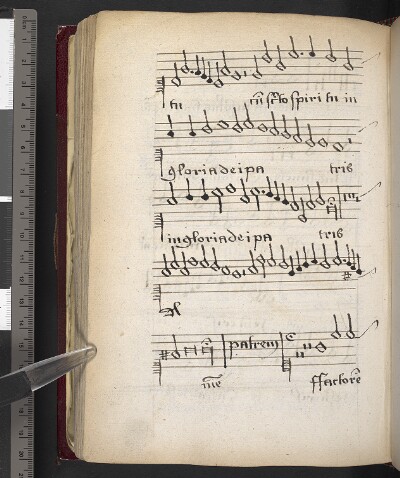 tu cū sc̄to spiritu in
gloria dei pa tris
in gloria dei pa tris
patrem
ffactorē